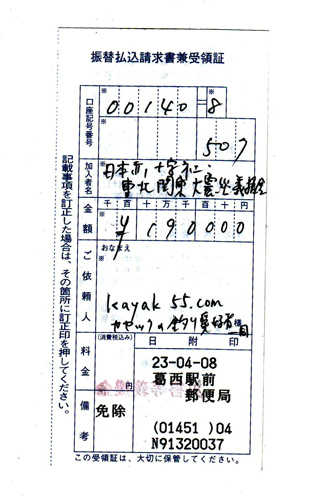 振替払込請求書兼受領証
口座記号番号
00140=8
507
加入者名
日本赤十字社
東北関東大震災義援金
金額
千百十万千百十円
¥190000
ご依頼人
おなまえ
kayak55.com
カヤックの釣り愛好者
様
一同
料金
(消費税込み)
日附印
23-04-08
葛西駅前
郵便局
備考
免除
(01451)04
N91320037
この受領証は、大切に保管してください。
記載事項を訂正した場合は、その箇所に訂正印を押してください。